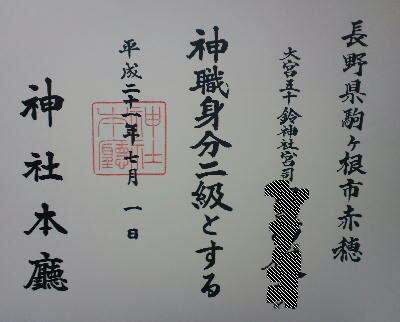 長野県駒ヶ根市赤穂
大宮五十鈴神社宮司
神職身分二級とする
平成二十一年七月一日
神社本廳